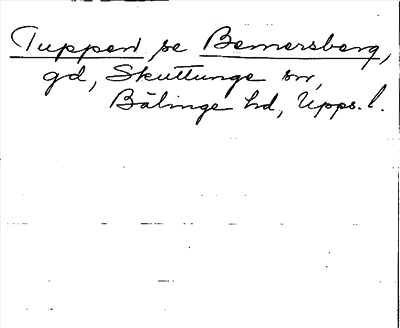 Tuppen se Bemersberg,
gd, Skuttunge sn,
Bälinge hd, Upps. l.